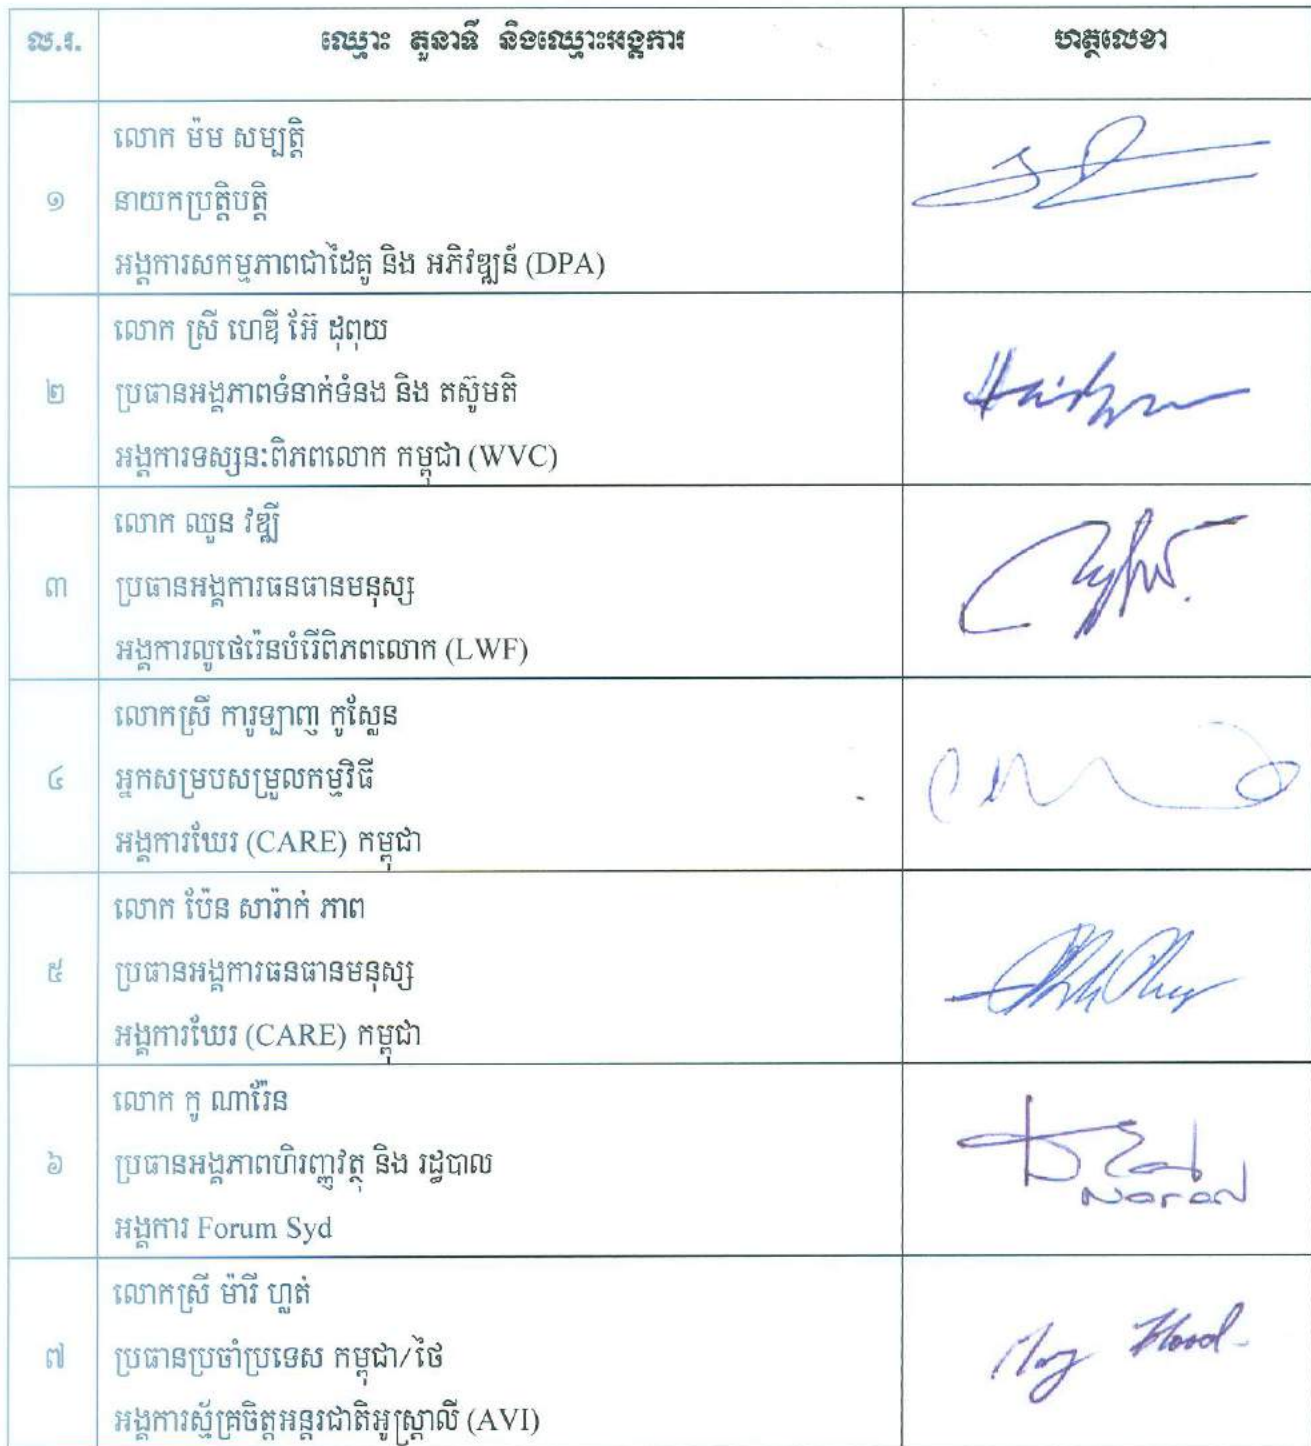 ល.រ. ឈ្មោះ តួនាទី និងឈ្មោះអង្គការ ហត្ថលេខា
លោក ម៉ម សម្បត្តិ
១ នាយកប្រត្តិបត្តិ
អង្គការសកម្មភាពជាដៃគូ និង អភិវឌ្ឍន៍ (DPA)
លោក ស្រី ហេឌី អ៊ែ ដុពុយ
២ ប្រធានអង្គភាពទំនាក់ទំនង និង តស៊ូមតិ
អង្គការទស្សនៈពិភពលោក កម្ពុជា (WVC)
លោក ឈួន វឌ្ឍី
៣ ប្រធានអង្គការធនធានមនុស្ស
អង្គការលូថេរ៉េនបំរើពិភពលោក (LWF)
លោកស្រី ការូឡាញ កូស្លែន
៤ អ្នកសម្របសម្រួលកម្មវិធី
អង្គការឃែរ (CARE) កម្ពុជា
លោក ប៉ែន សារ៉ាក់ ភាព
៥ ប្រធានអង្គការធនធានមនុស្ស
អង្គការឃែរ (CARE) កម្ពុជា
លោក កូ ណារ៉ែន
៦ ប្រធានអង្គភាពហិរញ្ញវត្ថុ និង រដ្ឋបាល
Naran
អង្គការ Forum Syd
លោកស្រី ម៉ារី ហ្លត់
៧ ប្រធានប្រចាំប្រទេស កម្ពុជា/ថៃ
អង្គការស្ម័គ្រចិត្តអន្តរជាតិអូស្ត្រាលី (AVI)